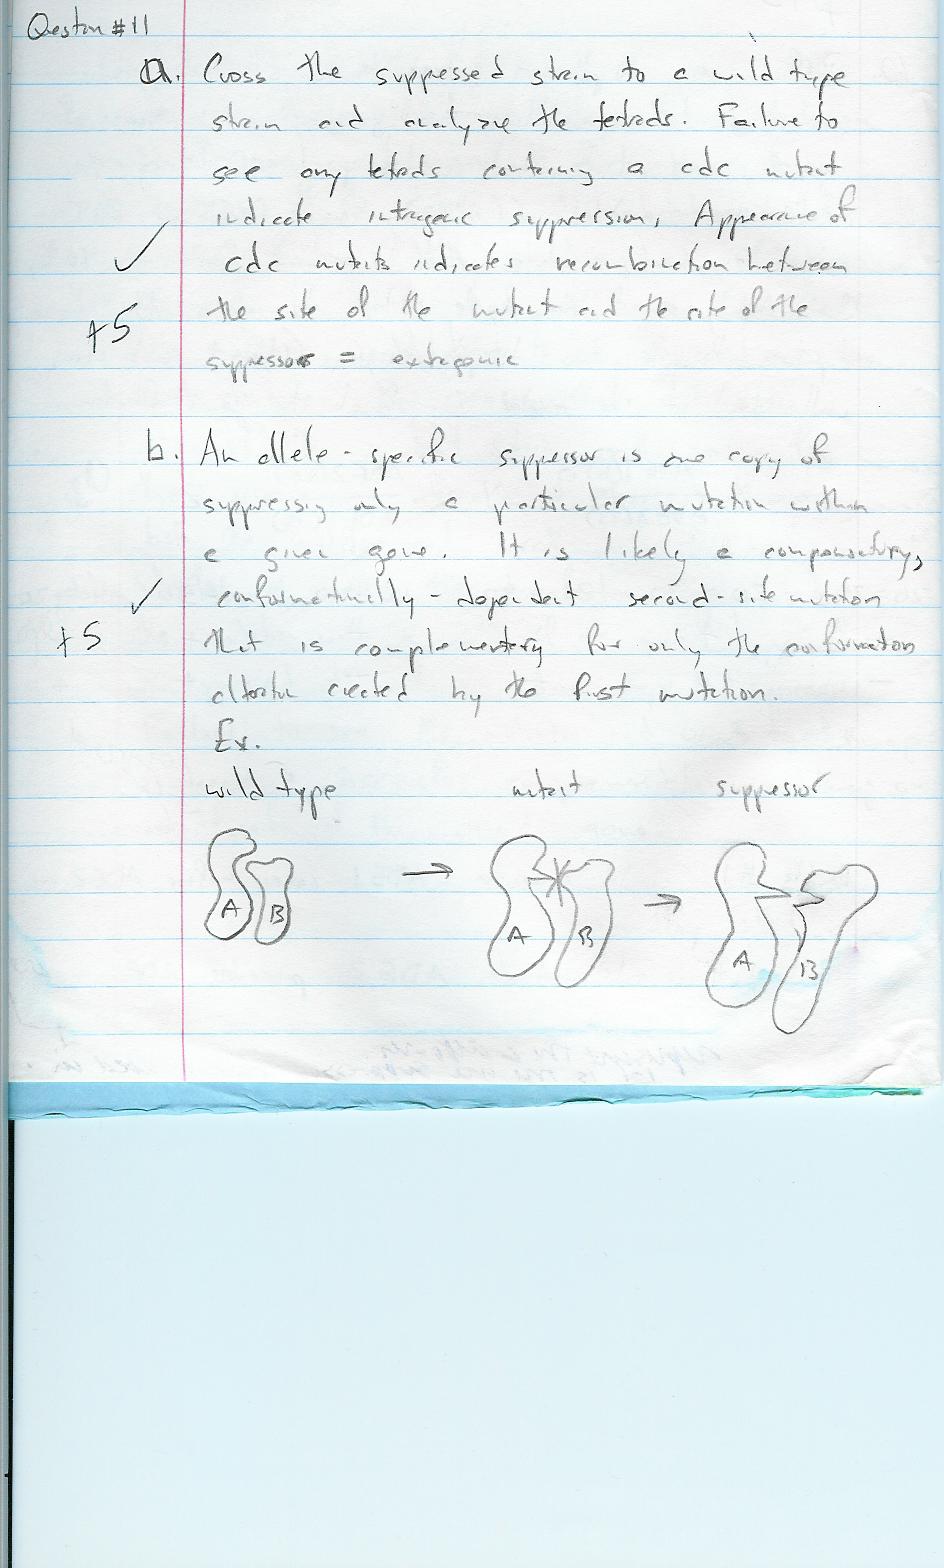 Question #11
a. Cross the suppressed strain to a wild type
strain and analyze the tetrads. Failure to
see any tetrads containing a cdc mutant
indicate intragenic suppression. Appearance of
cdc mutants indicates recombination between
the site of the mutant and the site of the
suppressor = extragenic
✓
+5
b. An allele-specific suppressor is one copy of
suppressing only a particular mutation within
a given gene. It is likely a compensatory,
conformationally-dependent second-site mutation
that is complementary for only the conformation
alteration created by the first mutation.
✓
+5
Ex.
wild type mutant suppressor
A B → A B → A B